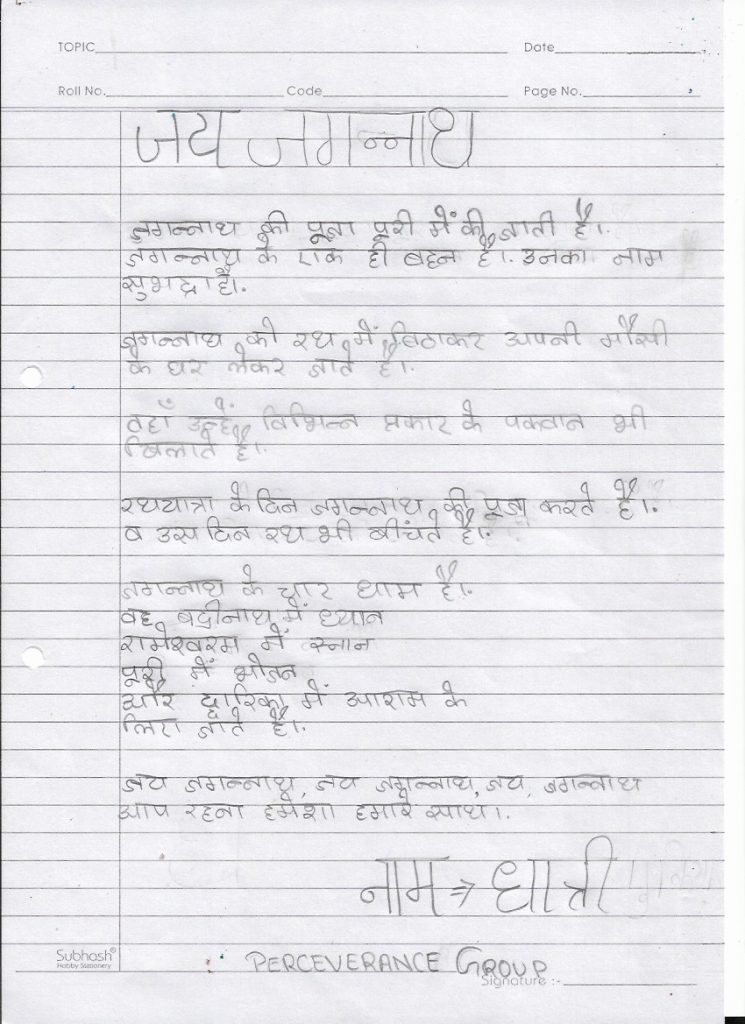 TOPIC Date
Roll No. Code Page No.
जय जगन्नाथ
जगन्नाथ की पूजा पूरी में की जाती है।.
जगन्नाथ के एक ही बहन है।. उनका नाम
सुभद्रा है।.
जगन्नाथ को रथ में बिठाकर अपनी मौसी
के घर लेकर जाते है।.
वहाँ उन्हें विभिन्न प्रकार के पकवान भी
खिलाते है।.
रथयात्रा के दिन जगन्नाथ की पूजा करते है।.
व उस दिन रथ भी खींचते है।.
जगन्नाथ के चार धाम है।.
वह बद्रीनाथ में ध्यान
रामेश्वरम में स्नान
पूरी में भोजन
और द्वारिका में आराम के
लिए जाते है।.
जय जगन्नाथ, जय जगन्नाथ, जय, जगन्नाथ
आप रहना हमेशा हमारे साथ।.
नाम ⇒ धात्री
Subhash®
Hobby Stationery
PERCEVERANCE GROUP
Signature :-